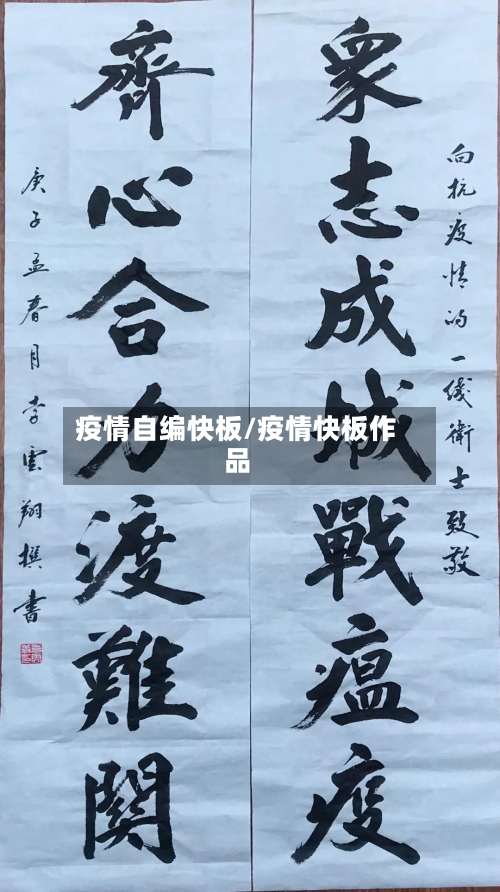 向抗疫情的一线衛士致敬
衆志成城戰瘟疫
齊心合力渡難關
庚子孟春月李雲翔撰書
疫情自编快板/疫情快板作
品